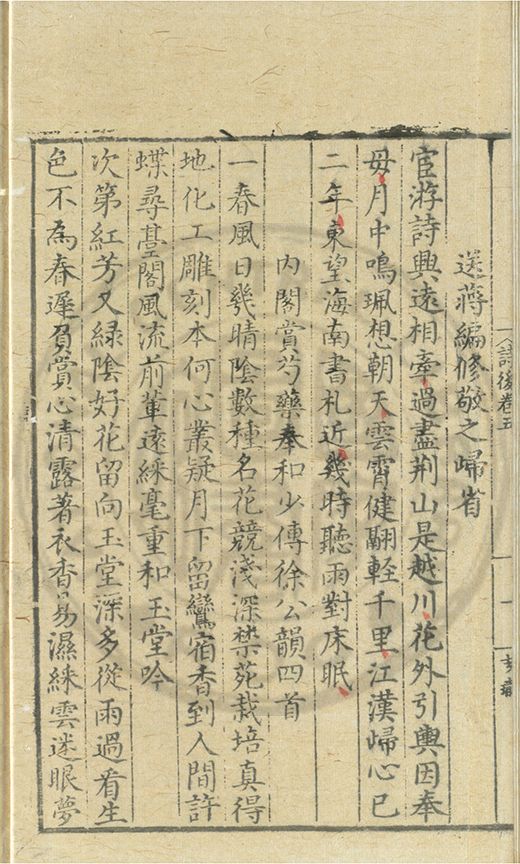 詩後卷五
送蔣編修敬之歸省
宦游詩興遠相牽過盡荆山是越川花外引輿因奉
母月中鳴珮想朝天雲霄健翮輕千里江漢歸心已
二年東望海南書札近幾時聽雨對床眠
內閣賞芍藥奉和少傅徐公韻四首
一春風日幾晴陰數種名花競淺深禁苑栽培真得
地化工雕刻本何心叢疑月下留鸞宿香到人間許
蝶尋臺閣風流前輩遠綵毫重和玉堂吟
次第紅芳又綠陰好花留向玉堂深多從雨過看生
色不為春遲負賞心清露著衣香易濕綵雲迷眼夢